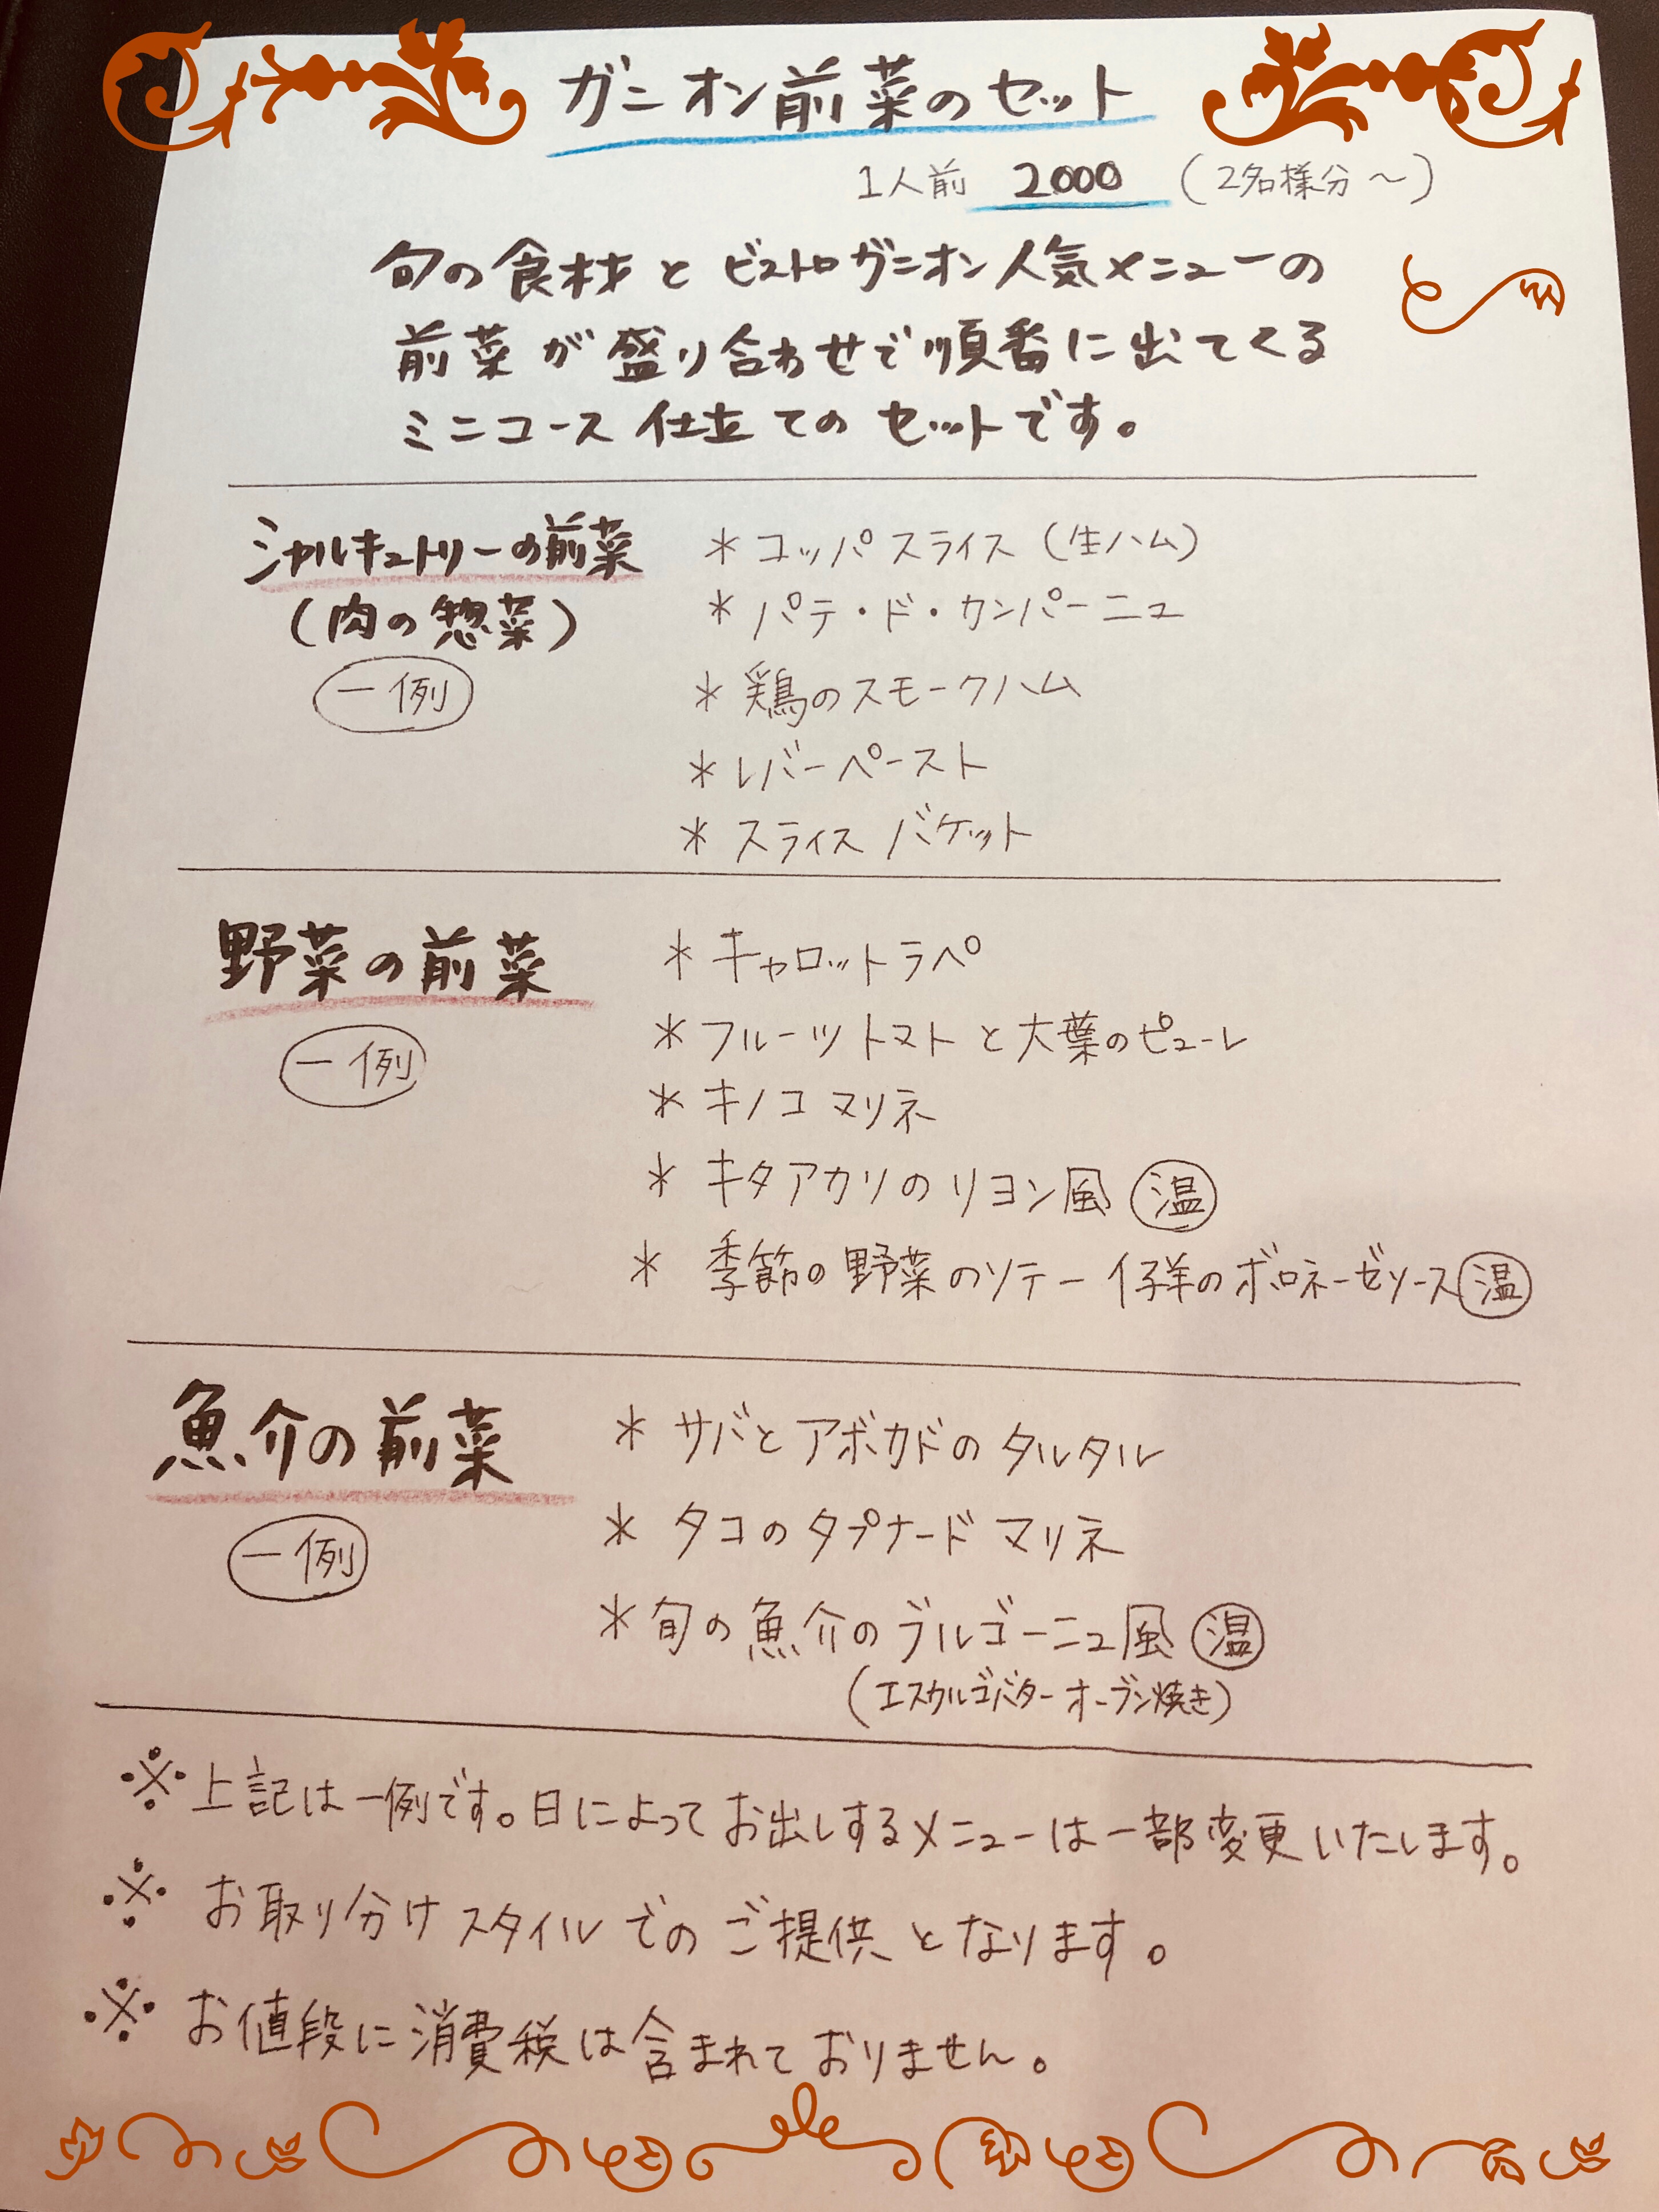 ガニオン前菜のセット
1人前 2000 (2名様分〜)
旬の食材とビストロガニオン人気メニューの
前菜が盛り合わせで順番に出てくる
ミニコース仕立てのセットです。
シャルキュトリーの前菜
(肉の惣菜)
一例
*コッパスライス(生ハム)
*パテ・ド・カンパーニュ
*鶏のスモークハム
*レバーペースト
*スライスバケット
野菜の前菜
一例
*キャロットラペ
*フルーツトマトと大葉のピューレ
*キノコマリネ
*キタアカリのリヨン風 温
*季節の野菜のソテー 仔羊のボロネーゼソース 温
魚介の前菜
一例
*サバとアボカドのタルタル
*タコのタプナードマリネ
*旬の魚介のブルゴーニュ風 温
(エスカルゴバターオーブン焼き)
※上記は一例です。日によってお出しするメニューは一部変更いたします。
※お取り分けスタイルでのご提供となります。
※お値段に消費税は含まれておりません。